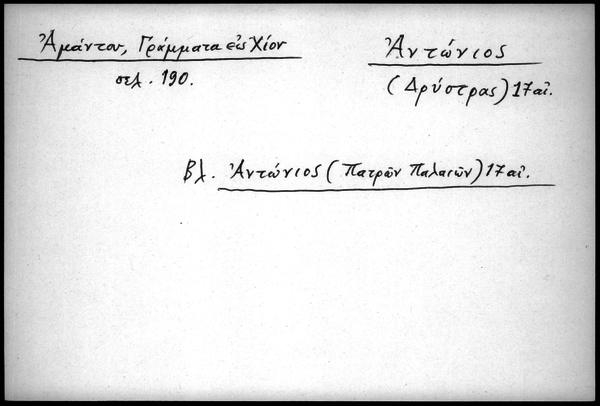 Ἀμάντου, Γράμματα εἰς Χίον
σελ. 190.
Ἀντώνιος
(Δρύστρας) 17 αἰ.
Βλ. Ἀντώνιος (Πατρῶν Παλαιῶν) 17 αἰ.